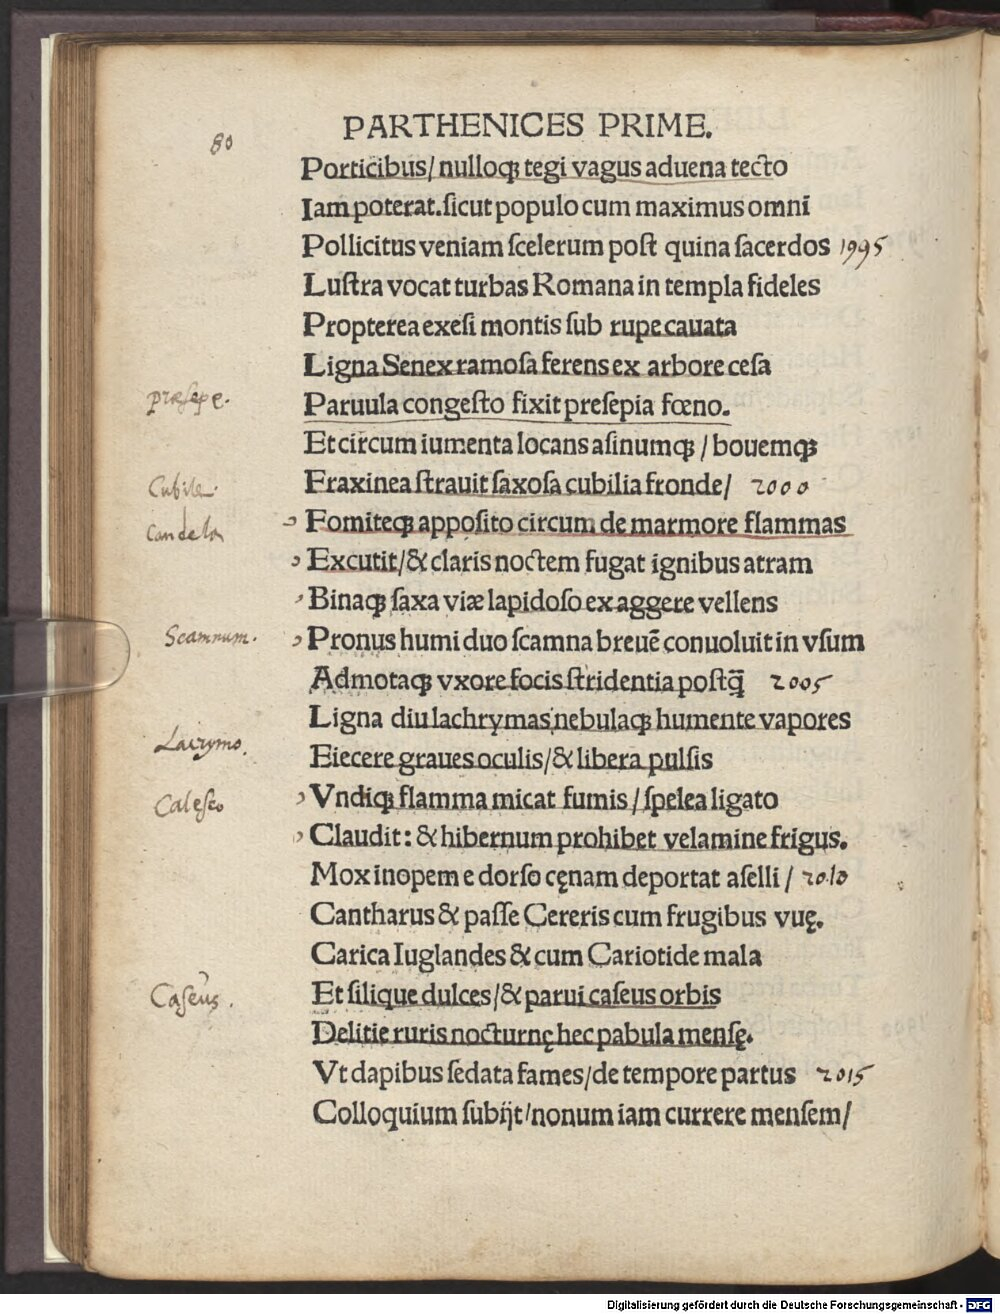 80
PARTHENICES PRIME.
Porticibus/ nulloqꝫ tegi vagus aduena tecto
Iam poterat. ſicut populo cum maximus omni
Pollicitus veniam ſcelerum poſt quina ſacerdos 1995
Luſtra vocat turbas Romana in templa fideles
Propterea exeſi montis ſub rupe cauata
Ligna Senex ramoſa ferens ex arbore ceſa
præsepe. Paruula congeſto fixit preſepia fœno.
Et circum iumenta locans aſinumqꝫ / bouemqꝫ
Cubile. Fraxinea ſtrauit ſaxoſa cubilia fronde/ 2000
Candela Fomiteqꝫ appoſito circum de marmore flammas
Excutit/ & claris noctem fugat ignibus atram
Binaqꝫ ſaxa viæ lapidoſo ex aggere vellens
Scamnum. Pronus humi duo ſcamna breuē conuoluit in vſum
Admotaqꝫ vxore focis ſtridentia poſtq̄ 2005
Ligna diu lachrymas nebulaqꝫ humente vapores
Lacrymo. Eiecere graues oculis/ & libera pulſis
Calesco Vndiqꝫ flamma micat fumis / ſpelea ligato
Claudit: & hibernum prohibet velamine frigus.
Mox inopem e dorſo cęnam deportat aſelli / 2010
Cantharus & paſſe Cereris cum frugibus vuę.
Carica Iuglandes & cum Cariotide mala
Caseus. Et ſilique dulces/ & parui caſeus orbis
Delitie ruris nocturnę hec pabula menſę.
Vt dapibus ſedata fames/ de tempore partus 2015
Colloquium ſubijt/ nonum iam currere menſem/
Digitalisierung gefördert durch die Deutsche Forschungsgemeinschaft - DFG